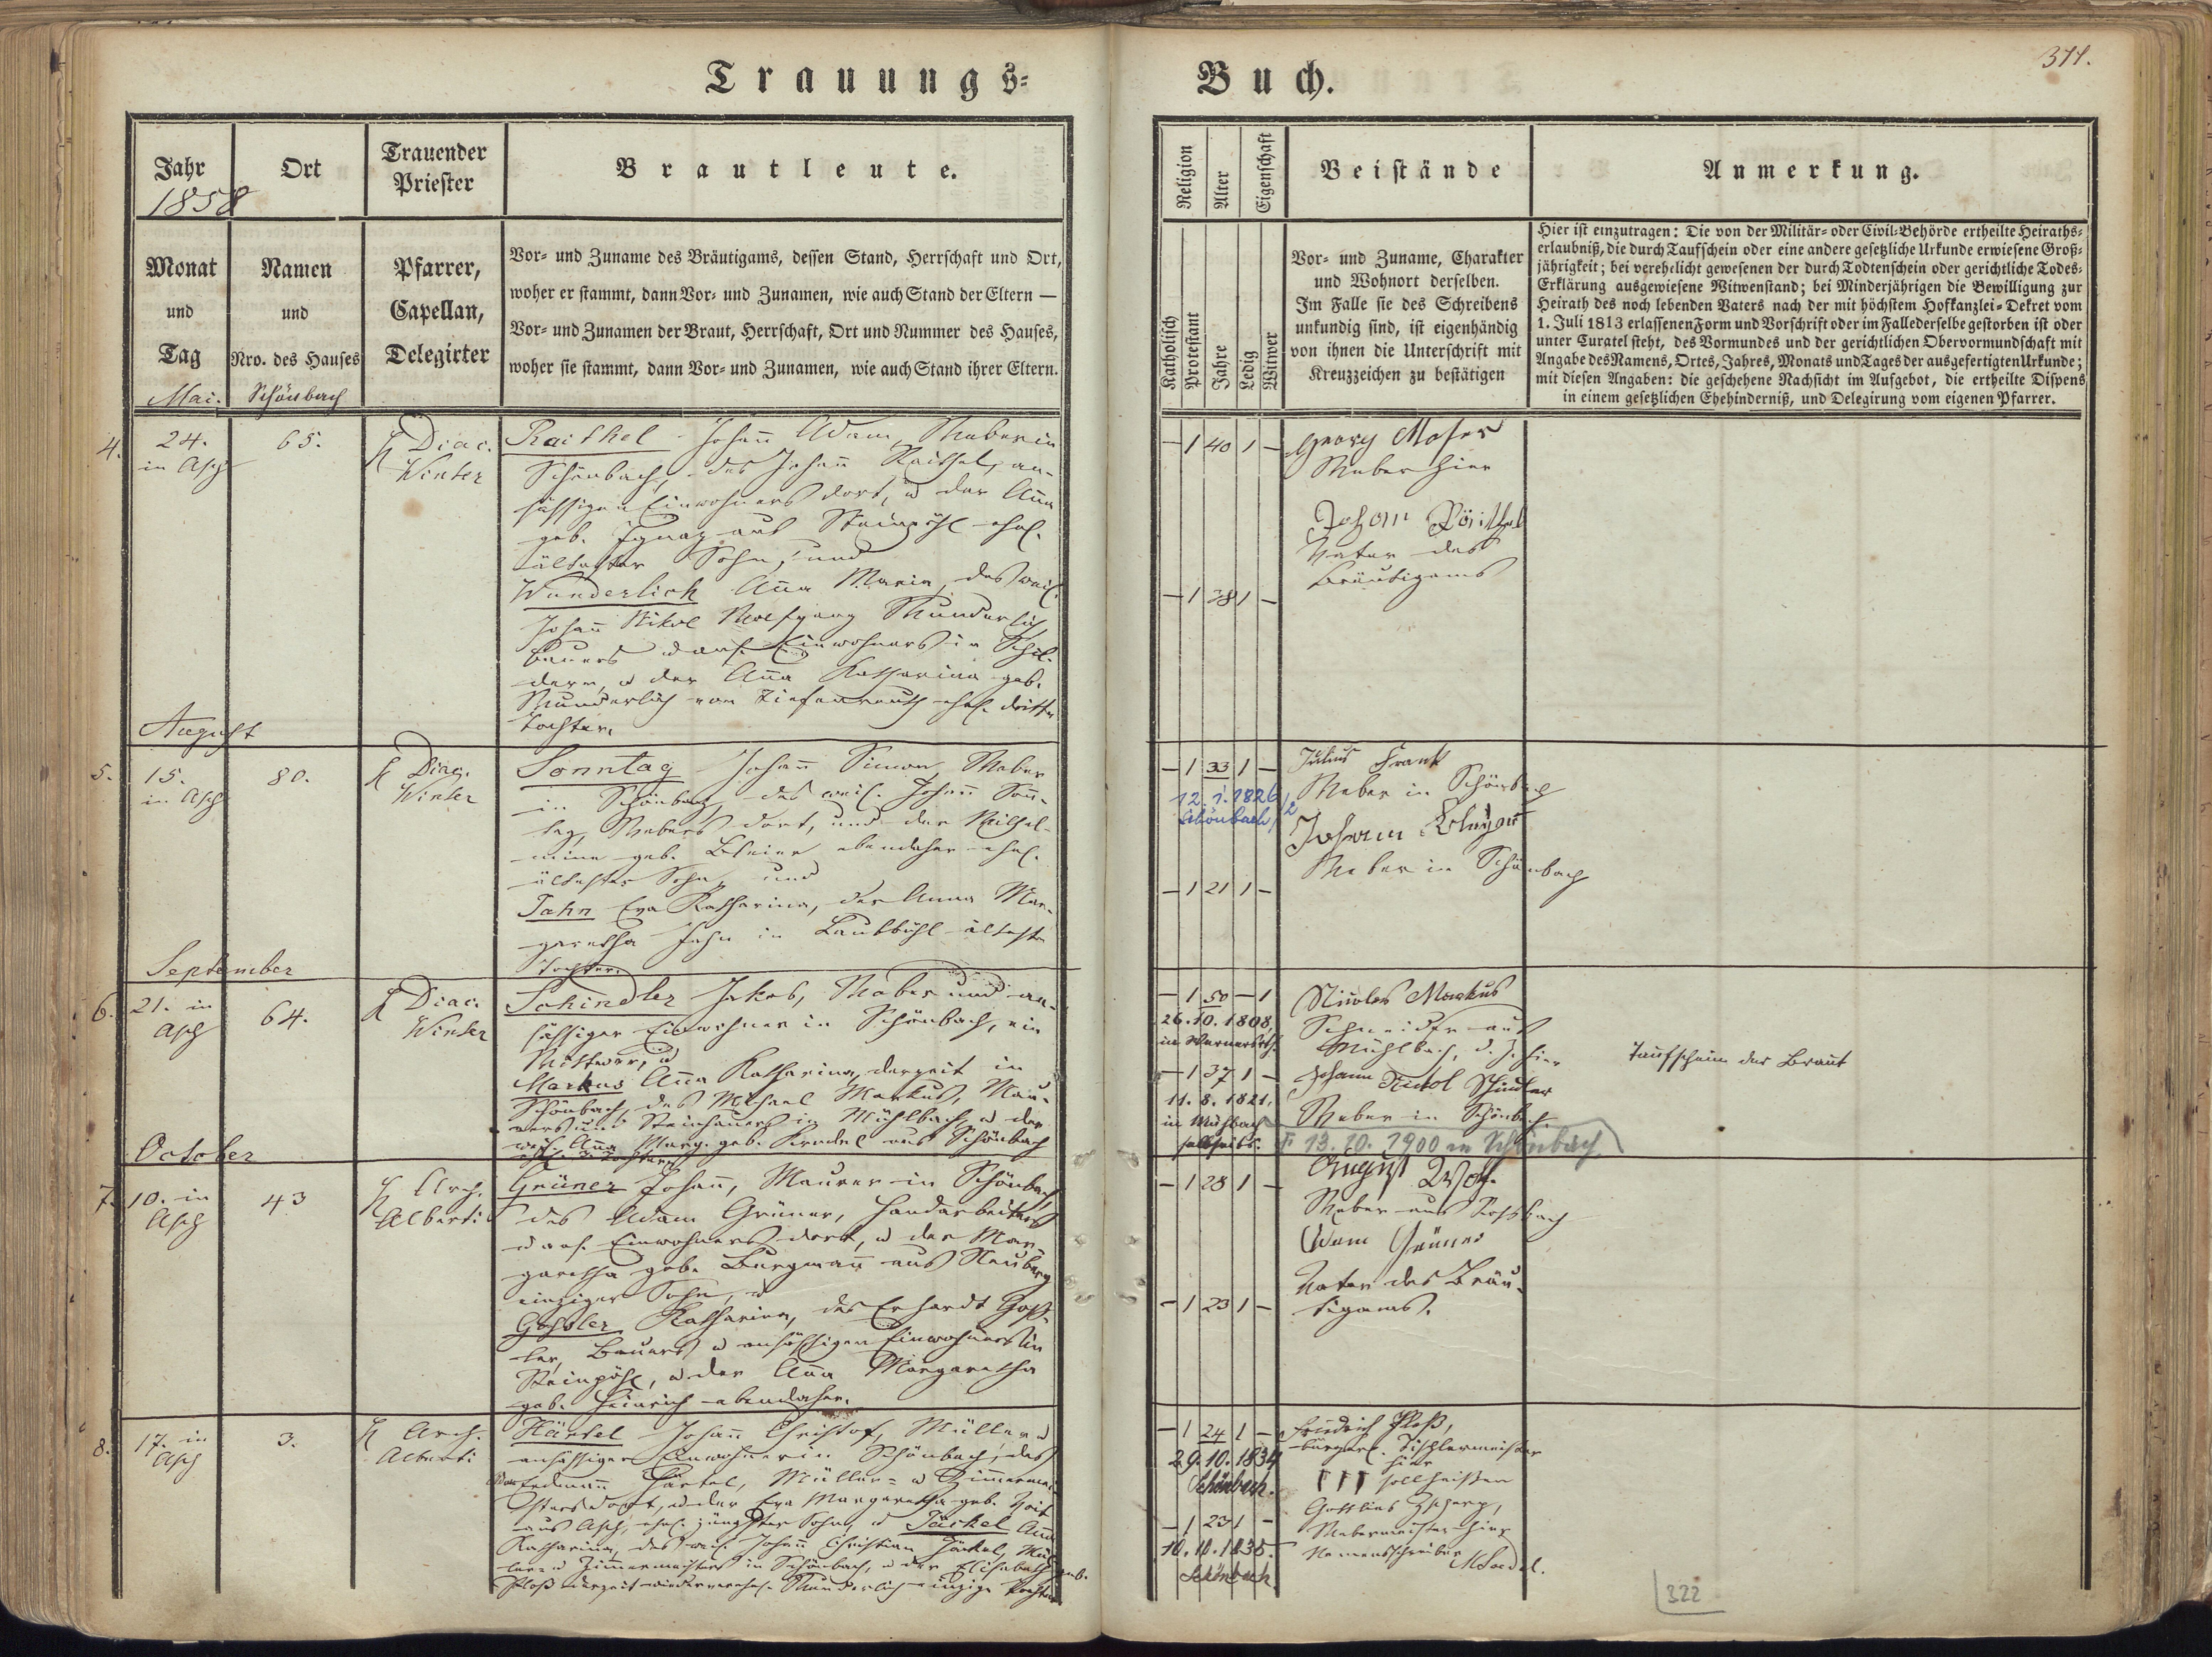 Trauungs-
Buch.
311.
Jahr
1858
Ort
Trauender
Priester
Brautleute.
Religion
Alter
Eigenschaft
Beistände
Anmerkung.
Monat
und
Tag
Mai.
Namen
und
Nro. des Hauses
Schönbach
Pfarrer,
Capellan,
Delegirter
Vor- und Zuname des Bräutigams, dessen Stand, Herrschaft und Ort,
woher er stammt, dann Vor- und Zunamen, wie auch Stand der Eltern —
Vor- und Zunamen der Braut, Herrschaft, Ort und Nummer des Hauses,
woher sie stammt, dann Vor- und Zunamen, wie auch Stand ihrer Eltern.
Katholisch
Protestant
Jahre
Ledig
Witwer
Vor- und Zuname, Charakter
und Wohnort derselben.
Im Falle sie des Schreibens
unkundig sind, ist eigenhändig
von ihnen die Unterschrift mit
Kreuzzeichen zu bestätigen
Hier ist einzutragen: Die von der Militär- oder Civil-Behörde ertheilte Heiraths-
erlaubniß, die durch Taufschein oder eine andere gesetzliche Urkunde erwiesene Groß-
jährigkeit; bei verehelicht gewesenen der durch Todtenschein oder gerichtliche Todes-
Erklärung ausgewiesene Witwenstand; bei Minderjährigen die Bewilligung zur
Heirath des noch lebenden Vaters nach der mit höchstem Hofkanzlei-Dekret vom
1. Juli 1813 erlassenen Form und Vorschrift oder im Falle derselbe gestorben ist oder
unter Curatel steht, des Vormundes und der gerichtlichen Obervormundschaft mit
Angabe des Namens, Ortes, Jahres, Monats und Tages der ausgefertigten Urkunde;
mit diesen Angaben: die geschehene Nachsicht im Aufgebot, die ertheilte Dispens
in einem gesetzlichen Ehehinderniß, und Delegirung vom eigenen Pfarrer.
4. 24.
in Asch
65.
Diac.
Winter
Raithel Johann Adam, Weber in
Schönbach, des Johann Raithel, an-
sässigen Einwohners dort, u der Anna
geb. aus Steinpöhl ehel.
ältester Sohn, und
Wunderlich Anna Maria, des weil.
Johann Nikol Wolfgang Wunderlich,
Bauers u ans. Einwohners in Schil-
dern, u der Anna Katharina geb.
Wunderlich von Tiefenreuth ehel. dritte
Tochter.
– 1 40 1 –
– 1 28 1 –
Georg Moser
Weber hier
Johann
Vater des
Bräutigams
August
5. 15.
in Asch
80.
Diac.
Winter
Sonntag Johann Simon, Weber
in Schönbach, des weil. Johann Sonn-
tag, Webers dort, und der Wilhel-
mine geb. ebendaher ehel.
ältester Sohn, und
Jahn Eva Katharina, der Anna Mar-
garetha Jahn in Laubbühl älteste
Tochter.
– 1 33 1 –
12. 1. 1826
Schönbach/2
– 1 21 1 –
Julius Frank
Weber in Schönbach
Johann
Weber in Schönbach
September
6. 21. in
Asch
64.
Diac.
Winter
Schindler Jakob, Weber und an-
sässiger Einwohner in Schönbach, ein
Wittwer, u
Markus Anna Katharina, derzeit in
Schönbach, des Michael Markus, Mau-
rers und Steinhauers in Mühlbach, u der
weil. Anna Marg. geb. Künzel aus Schönbach
– 1 50 – 1
26. 10. 1808,
in Wernersrth.
– 1 37 1 –
11. 8. 1821.
in Mühlbach
Nicolas Markus
Schneider aus
Mühlbach, d. Z. hier
Johann Nickol Schindler
Weber in Schönbach.
† 13. 10. 1900 in Schönbach
Taufschein der Braut
October
7. 10. in
Asch
43
Arch.
Alberti
Grüner Johann, Maurer in Schönbach,
des Adam Grüner, Handarbeiters
u ans. Einwohners dort, u der Mar-
garetha geb. Burgmann aus Neuberg
einziger Sohn, u
Goßler Katharina, des Erhardt Goß-
ler, Bauers u ansässigen Einwohners in
Steinpöhl, u der Anna Margaretha
geb. Heinrich ebendaher.
– 1 28 1 –
– 1 23 1 –
August Wolf.
Weber aus Rossbach
Adam Grüner
Vater des Bräu-
tigams.
8. 17. in
Asch
3.
Arch.
Alberti
Härtel Johann Christof, Müller u
ansässiger Einwohner in Schönbach, des
Erdmann Härtel, Müller- u Zimmermei-
sters dort, u der Eva Margaretha geb. Voit
aus Asch, ehel. jüngster Sohn, u Jäckel Anna
Katharina, des weil. Johann Christian Jäckel, Mül-
lers u Zimmermeisters in Schönbach, u der Elisabeth geb.
Ploß derzeit wiederverehel. Wunderlich einzige Tochter
– 1 24 1 –
29. 10. 1834
Schönbach.
– 1 23 1 –
10. 10. 1835.
Schönbach.
Friedrich Ploß,
bürgerl. Tischlermeister
hier
††† soll heißen
Gottlieb
Webermeister hier
Namensschreiber
322